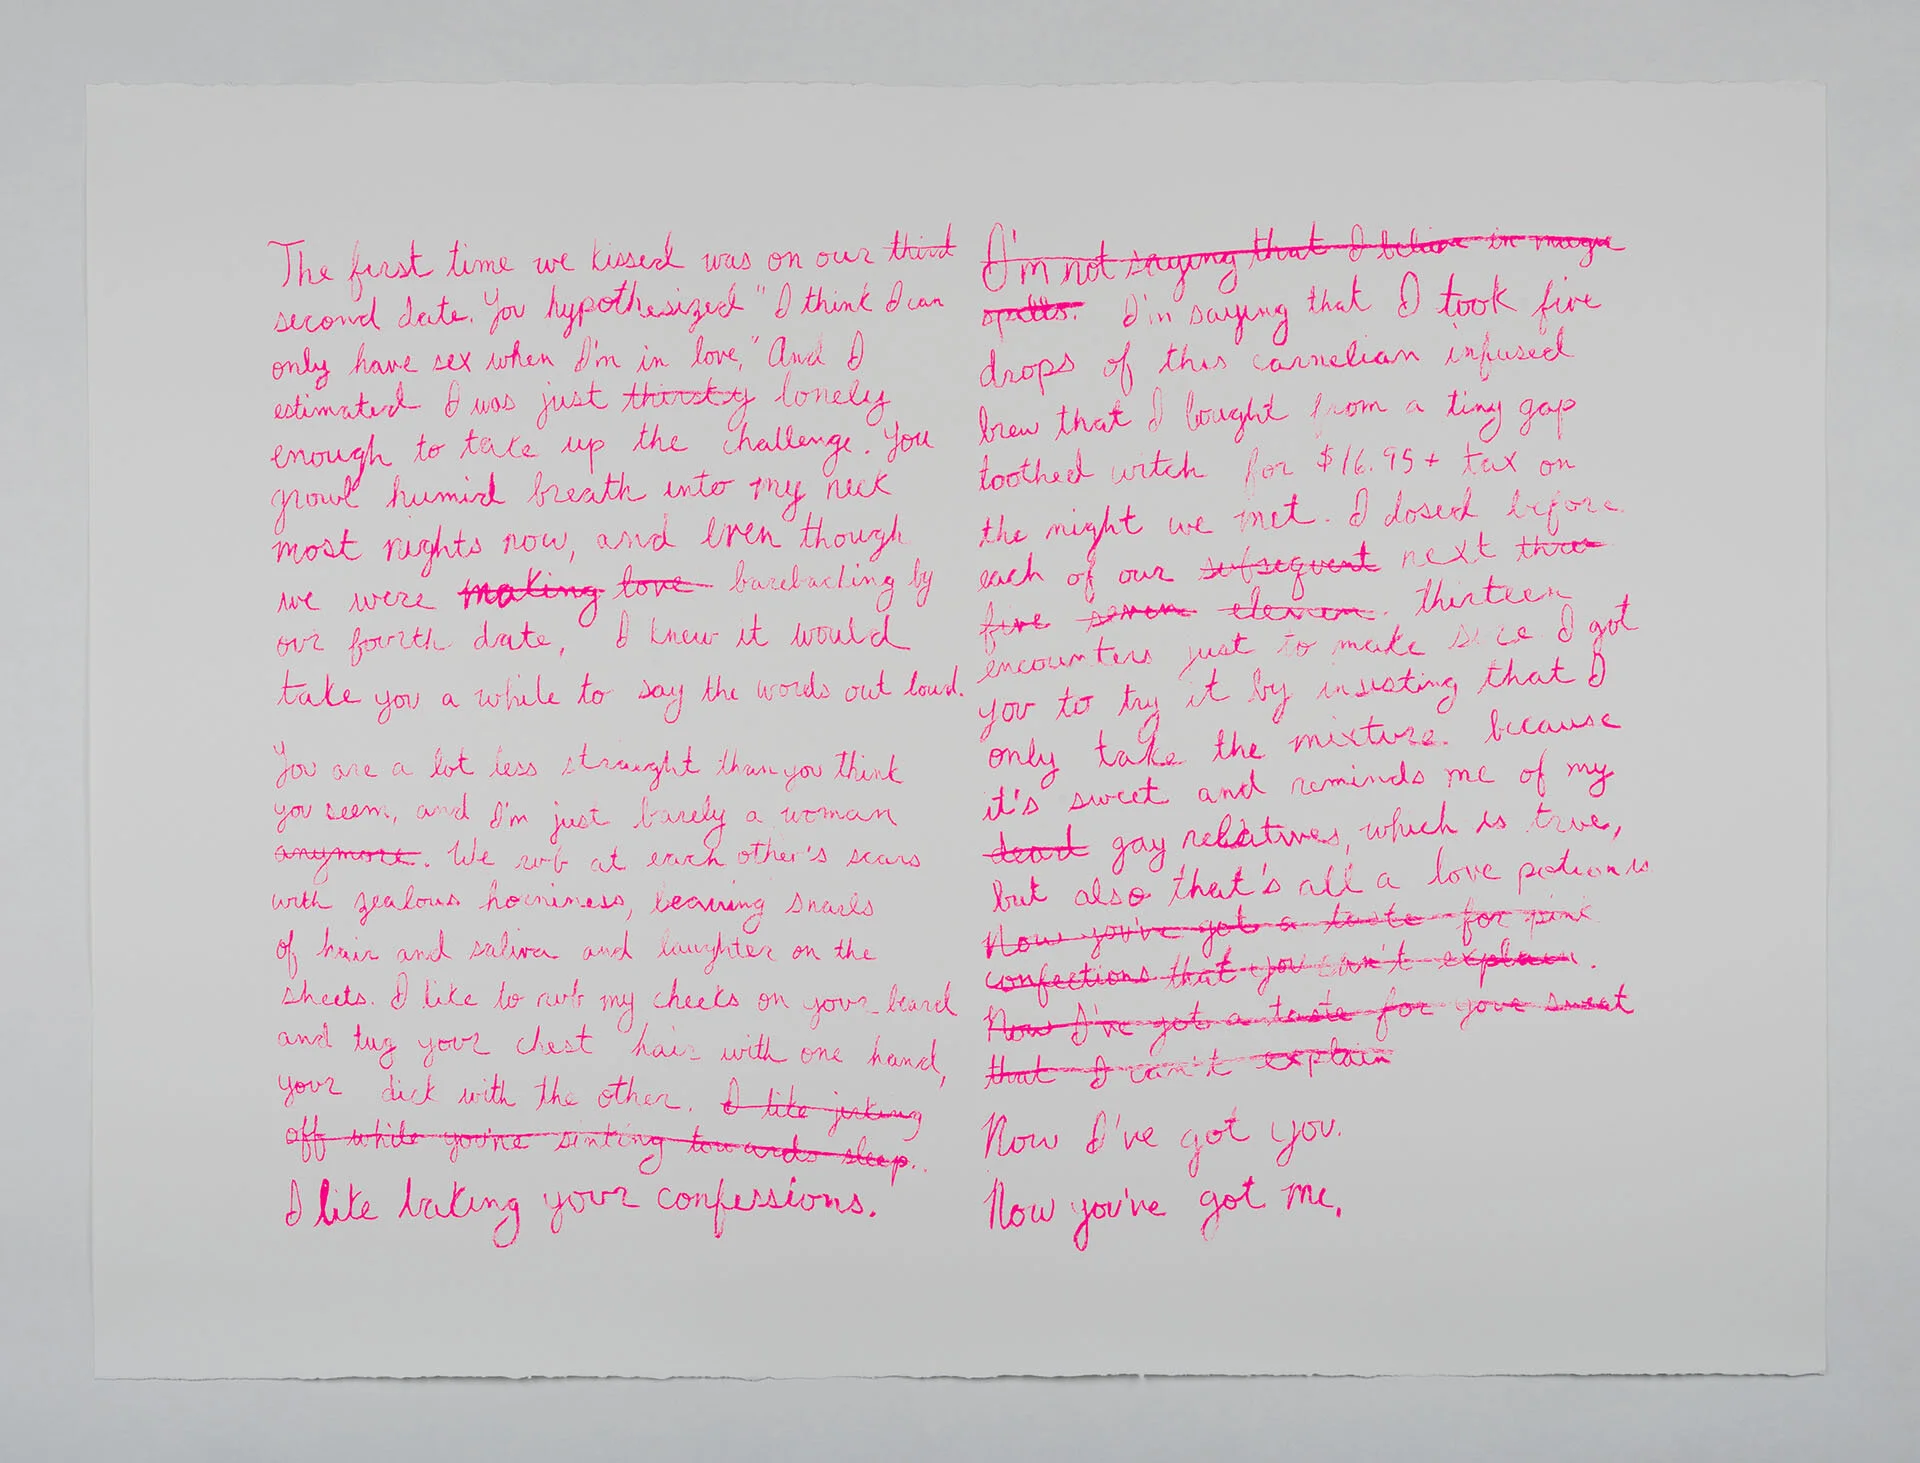 The first time we kissed was on our third
second date. You hypothesized "I think I can
only have sex when I'm in love," And I
estimated I was just thirsty lonely
enough to take up the challenge. You
growl humid breath into my neck
most nights now, and even though
we were making love barebacking by
our fourth date, I knew it would
take you a while to say the words out loud.
You are a lot less straight than you think
you seem, and I'm just barely a woman
anymore. We rub at each other's scars
with zealous horniness, leaving snarls
of hair and saliva and laughter on the
sheets. I like to rub my cheeks on your beard
and tug your chest hair with one hand,
your dick with the other. I like jerking
off while you're sinking towards sleep.
I like taking your confessions.
I'm not saying that I believe in magic
spells. I'm saying that I took five
drops of this carnelian infused
brew that I bought from a tiny gap
toothed witch for $16.95 + tax on
the night we met. I dosed before
each of our subsequent next three
five seven eleven. thirteen
encounters just to make sure I got
you to try it by insisting that I
only take the mixture because
it's sweet and reminds me of my
dead gay relatives, which is true,
but also that's all a love potion is
Now you've got a taste for pink
confections that you can't explain.
Now I've got a taste for your sweat
that I can't explain
Now I've got you.
Now you've got me.